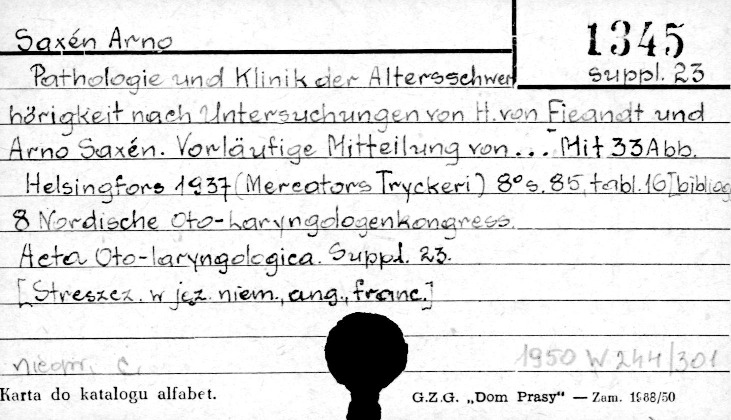 Saxén Arno
1345
suppl. 23
Pathologie und Klinik der Altersschwer
hörigkeit nach Untersuchungen von H. von Fieandt und
Arno Saxén. Vorläufige Mitteilung von... Mit 33 Abb.
Helsingfors 1937 (Mercators Tryckeri) 8° s. 85, tabl. 16 [bibliog
8 Nordische Oto-Laryngologenkongress.
Acta Oto-laryngologica. Suppl. 23.
[Streszcz. w jęz. niem., ang., franc.]
nieopr. C.
1950 W 244/301
Karta do katalogu alfabet.
G.Z.G. „Dom Prasy“ — Zam. 1988/50